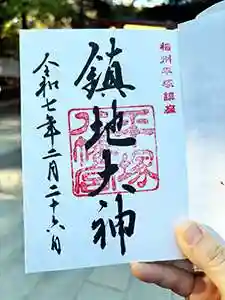 相州平塚鎮座
鎮地大神
平塚
八幡宮
令和七年二月二十六日